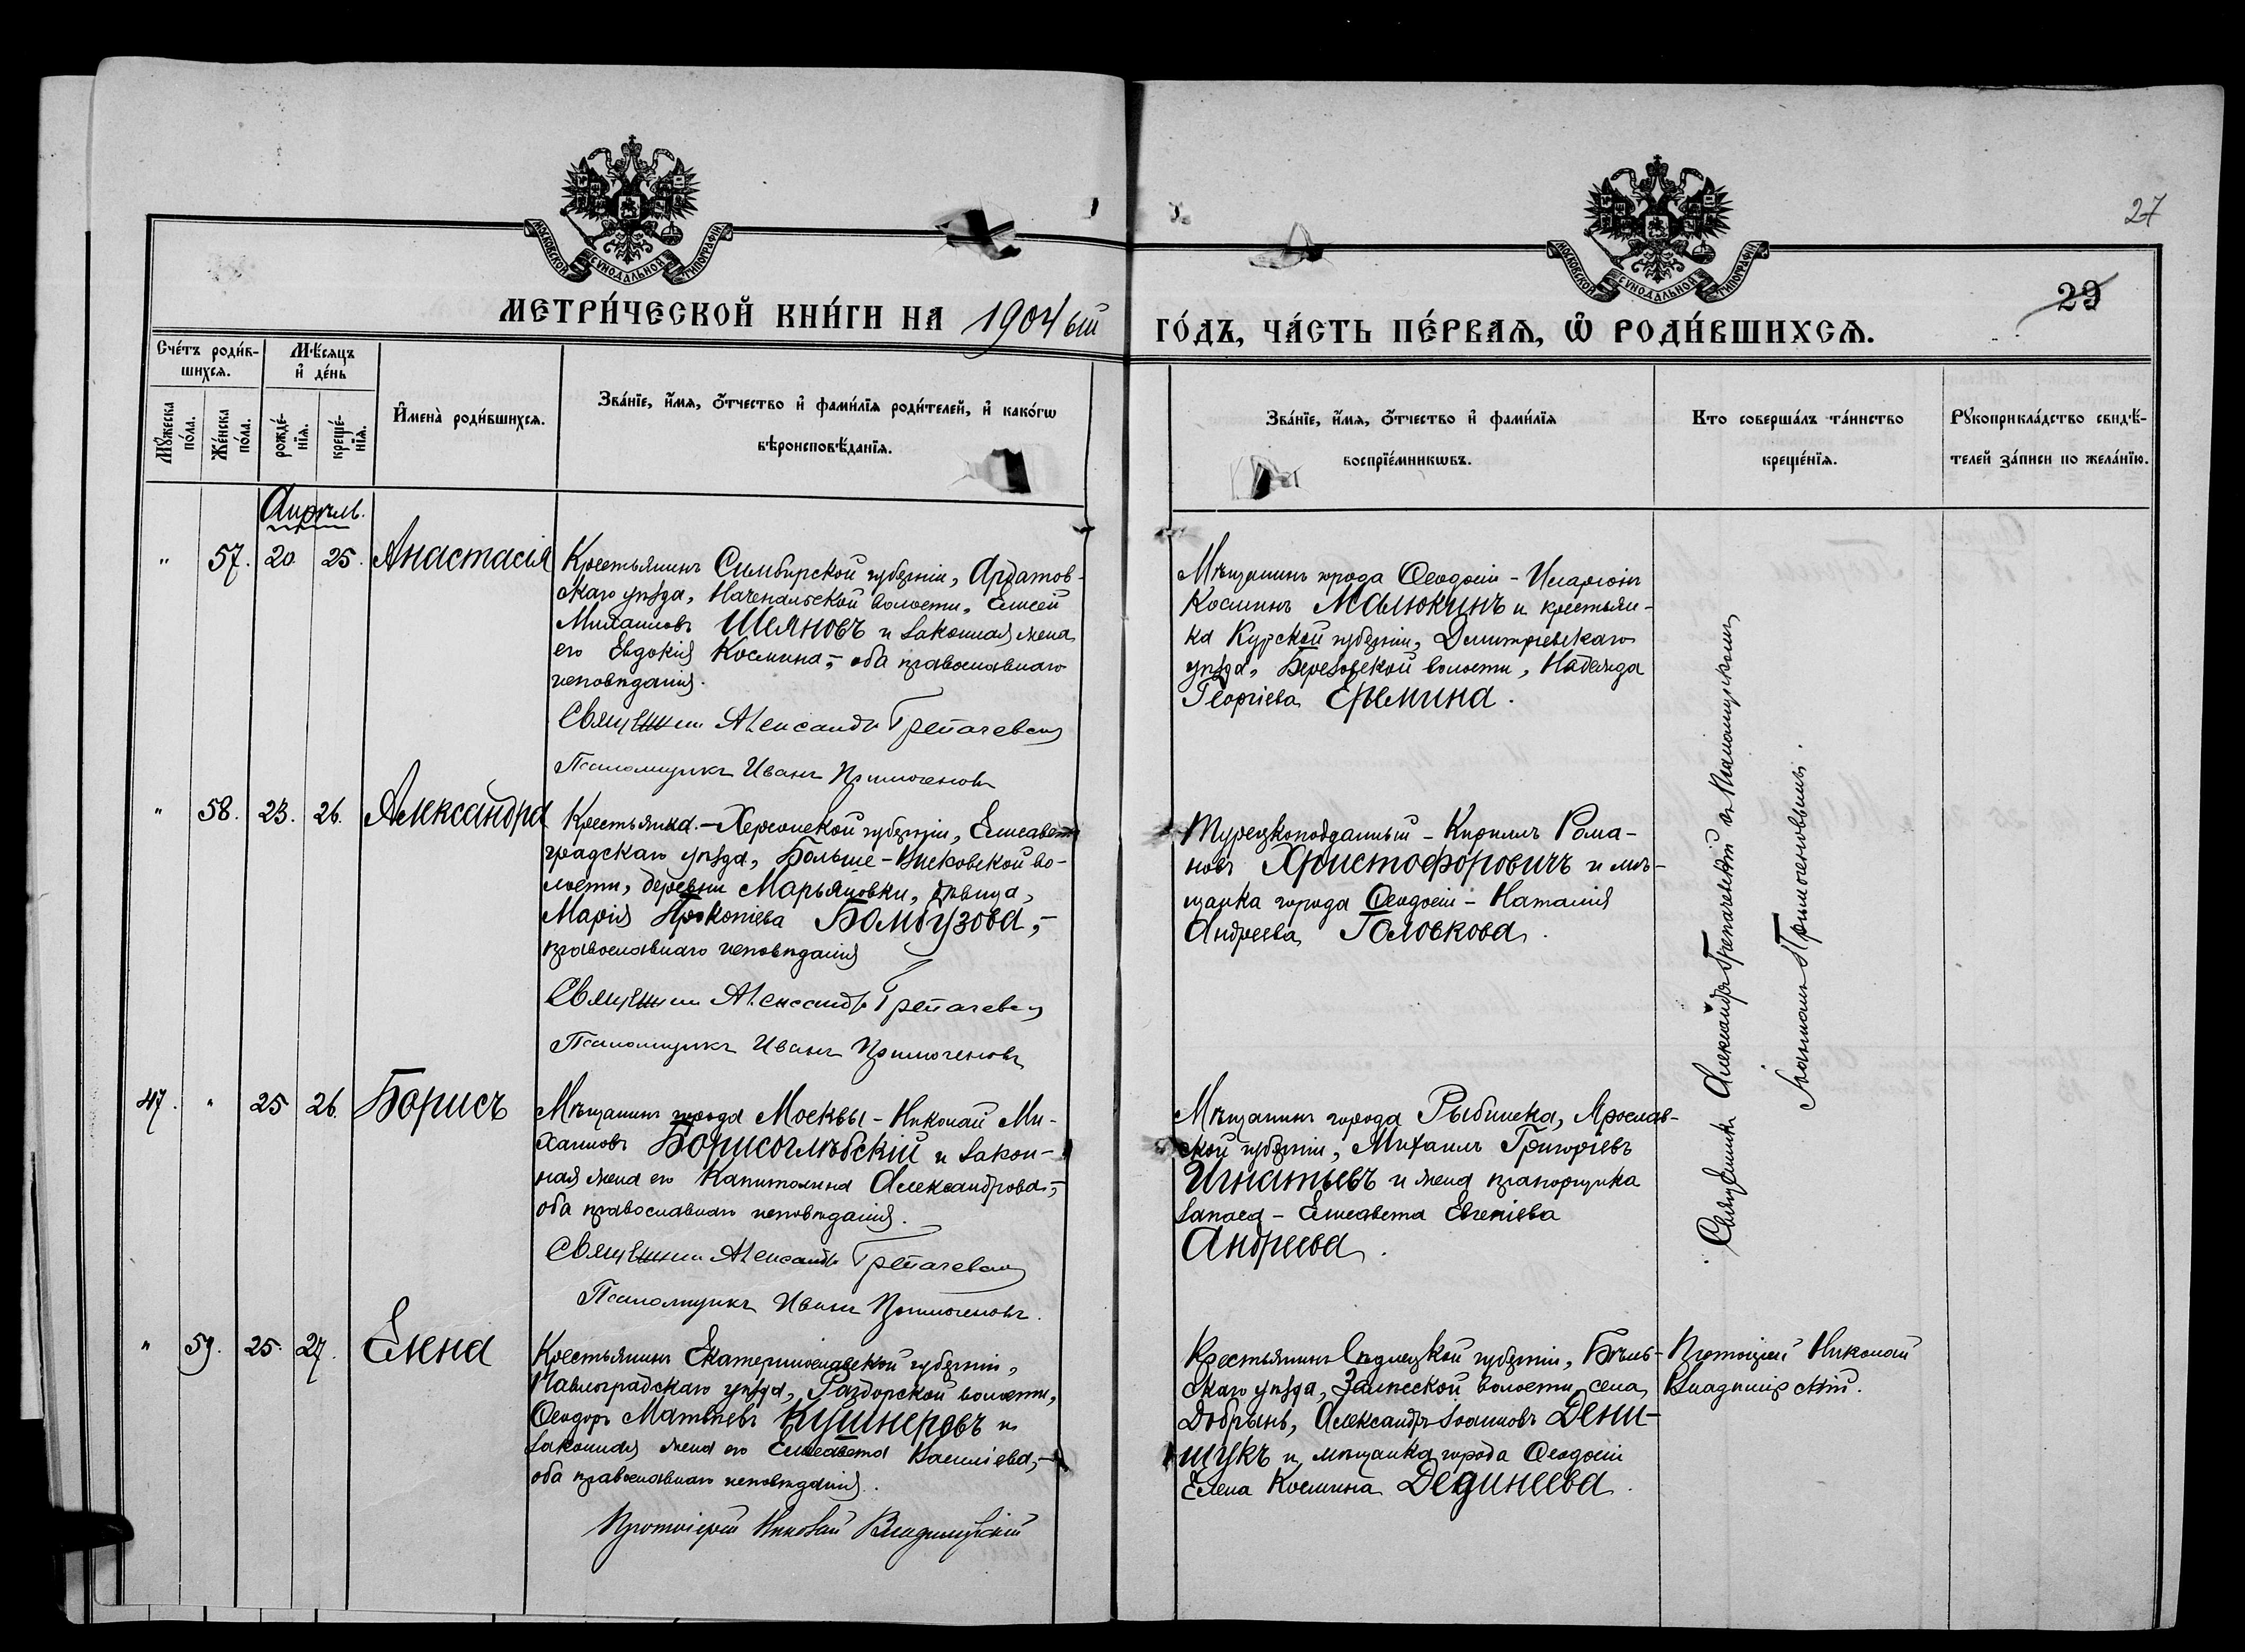 27
29
МОСКОВСКОЙ СѴНОДАЛЬНОЙ ТИПОГРАФІИ
МОСКОВСКОЙ СѴНОДАЛЬНОЙ ТИПОГРАФІИ
МЕТРИ́ЧЕСКОЙ КНИ́ГИ НА 1904ый ГО́ДЪ, ЧА́СТЬ ПЕ́РВАѦ, Ѽ РОДИ́ВШИХСѦ.
Сче́тъ роди́в-
шихсѧ.
Мѣ́сяцъ
и҆ де́нь
Мꙋ́жеска
по́ла.
Же́нска
по́ла.
рожде́-
нїѧ.
креще́-
нїѧ.
И҆мена̀ роди́вшихсѧ.
Зва́нїе, и҆́мѧ, ѻ҆́тчество и҆ фами́лїѧ роди́телей, и҆ како́гѡ
вѣроисповѣ́данїѧ.
Зва́нїе, и҆́мѧ, ѻ҆́тчество и҆ фами́лїѧ
воспрїе́мникѡвъ.
Кто соверша́лъ та́инство
креще́нїѧ.
Рꙋкоприкла́дство свидѣ́-
телей за́писи по жела́нїю.
Апрѣль.
" 57. 20. 25. Анастасія
Крестьянинъ Симбирской губерніи, Ардатов-
скаго уѣзда, Наченальской волости, Елисей
Михаиловъ Шеяновъ и законная жена
его Евдокія Космина,- оба православнаго
исповѣданія.
Священникъ Александр Грепачевскій
Псаломщикъ Иванъ Примоченовъ
Мѣщанинъ города Ѳеодосіи - Иларіонъ
Косминъ Малюкинъ и крестьян-
ка Курской губерніи, Димитріевскаго
уѣзда, Березовской волости, Надежда
Георгіева Еремина.
" 58. 23. 26. Александра
Крестьянка - Херсонской губерніи, Елисавет-
градскаго уѣзда, Больше-Висковской во-
лости, деревни Марьяновки, дѣвица,
Марія Прокопіева Бомбузова,-
православнаго исповѣданія
Священникъ Александр Грепачевскій
Псаломщикъ Иванъ Примоченовъ
Турецкоподданный - Кириллъ Рома-
новъ Христофоровичъ и мѣ-
щанка города Ѳеодосіи - Наталія
Андреева Головкова.
47. " 25 26. Борисъ
Мѣщанинъ города Москвы - Николай Ми-
хаиловъ Борисоглѣбскій и закон-
ная жена его Капитолина Александрова,-
оба православнаго исповѣданія.
Священникъ Александр Грепачевскій
Псаломщикъ Иванъ Примоченовъ.
Мѣщанинъ города Рыбинска, Ярослав-
ской губерніи, Михаилъ Григоріевъ
Игнатьевъ и жена прапорщика
запаса - Елисавета Евгеніева
Андреева.
Священникъ Александръ Грепачевскій съ Псаломщикомъ
Іоанномъ Примоченовымъ.
" 59. 25. 27. Елена
Крестьянинъ Екатеринославской губерніи,
Павлоградскаго уѣзда, Раздорской волости,
Ѳеодоръ Матѳіевъ Кушнеровъ и
законная жена его Елисавета Василіева,-
оба православнаго исповѣданія.
Протоіерей Николай Владимірскій
Крестьянинъ Сѣдлецкой губерніи, Бѣль-
скаго уѣзда, Залѣсской волости, села
Добрынь, Александръ Іоанновъ Дени-
щукъ и мѣщанка города Ѳеодосіи
Елена Космина Дединеева.
Протоіерей Николай
Владимірскій.